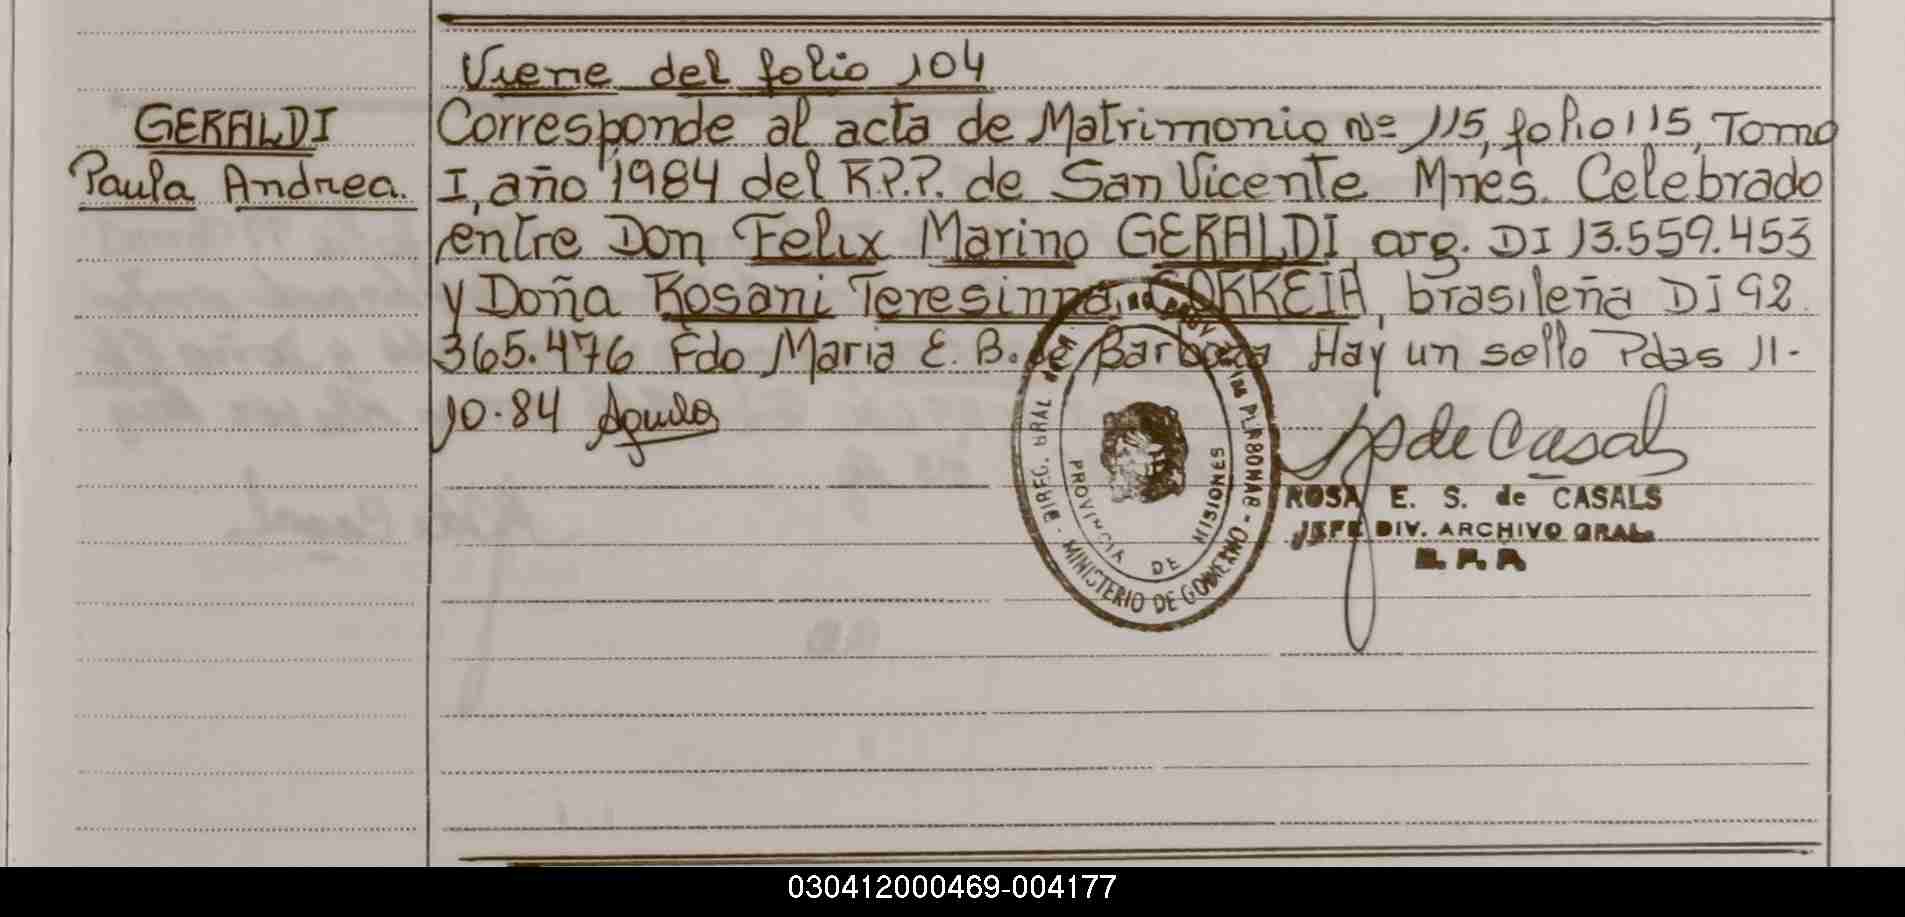 Viene del folio 104
GERALDI
Paula Andrea.
Corresponde al acta de Matrimonio Nº 115, folio 115, Tomo
I, año 1984 del R.P.P. de San Vicente Mnes. Celebrado
entre Don Felix Marino GERALDI, arg. DI 13.559.453
y Doña Rosani Teresinna CORREIA, brasileña DI 92.
365.476 Fdo Maria E. B. de Barboza Hay un sello Pdas 11-
10-84
DIREC. GRAL DEL
MINISTERIO DE GOBIERNO
PROVINCIA DE MISIONES
ROSA E. S. de CASALS
JEFE DIV. ARCHIVO GRAL.
R. P. P.
030412000469-004177